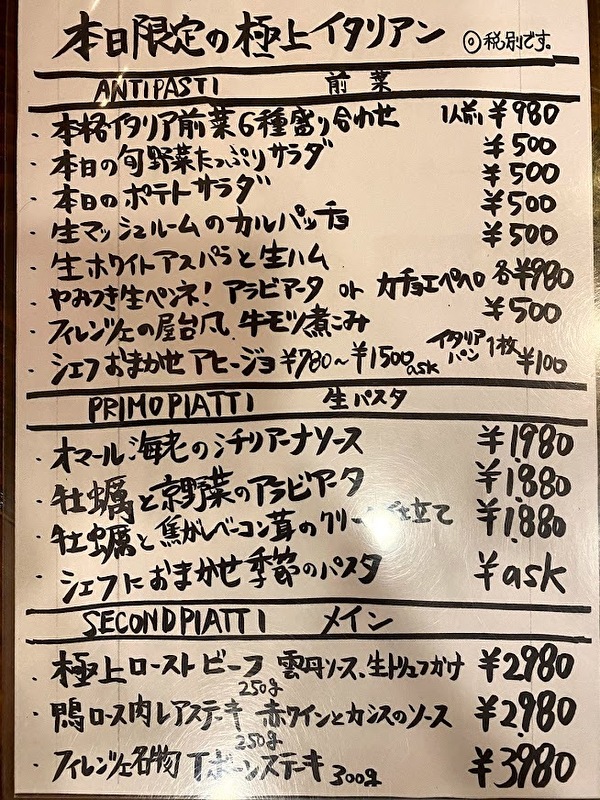 本日限定の極上イタリアン ◎税別です。
ANTIPASTI 前菜
・本格イタリア前菜6種盛り合わせ 1人前 ¥980
・本日の旬野菜たっぷりサラダ ¥500
・本日のポテトサラダ ¥500
・生マッシュルームのカルパッチョ ¥500
・生ホワイトアスパラと生ハム ¥500
・やみつき生ペンネ！アラビアータ or カチョエペペ 各¥980
・フィレンツェの屋台風 牛モツ煮こみ ¥500
・シェフおまかせアヒージョ ¥780～¥1500 ask イタリアパン1枚 ¥100
PRIMO PIATTI 生パスタ
・オマール海老のシチリアーナソース ¥1980
・牡蠣と京野菜のアラビアータ ¥1.880
・牡蠣と焦がしベーコン茸のクリーム仕立て ¥1.880
・シェフにおまかせ季節のパスタ ¥ask
SECOND PIATTI メイン
・極上ローストビーフ 250g 雲丹ソース、生トリュフがけ ¥2980
・鴨ロース肉レアステーキ 250g 赤ワインとカシスのソース ¥2.980
・フィレンツェ名物 Tボーンステーキ 300g ¥3980